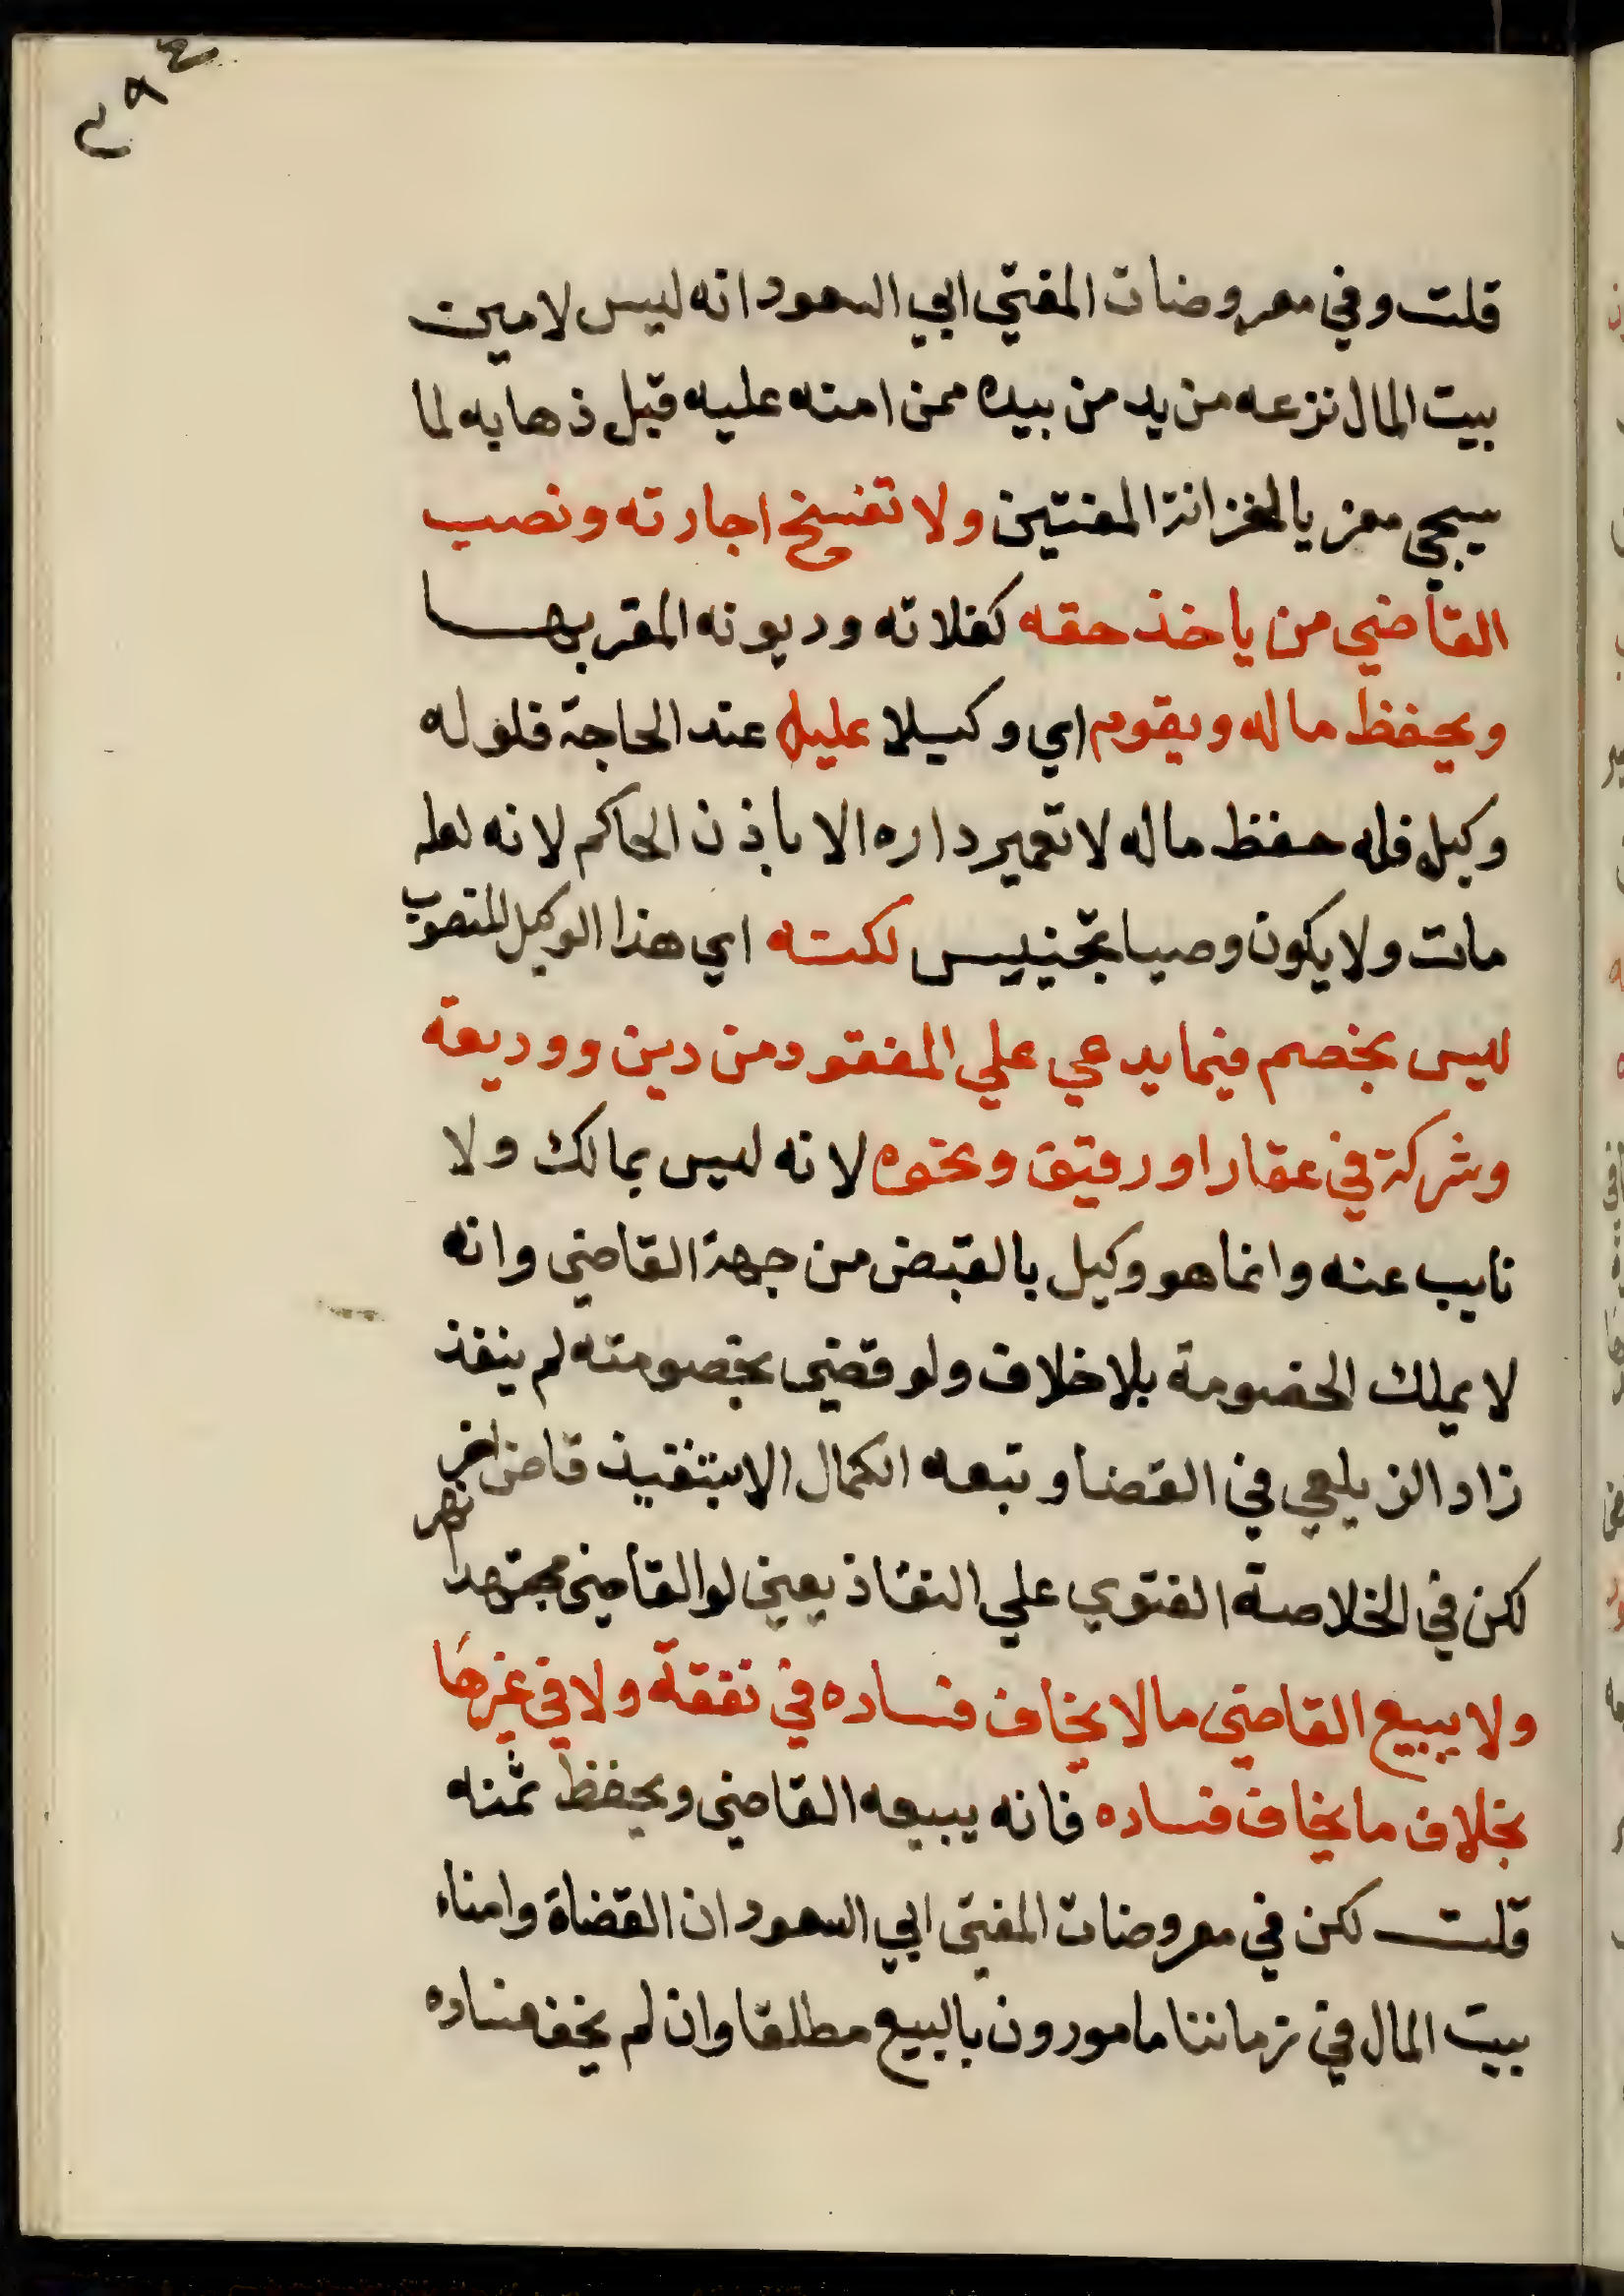 ٢٩٤
قلت وفي معروضات المفتي ابي السعود انه ليس لامين
بيت المال نزعه من يد من بيده ممن امنه عليه قبل ذهابه لما
سيجي معزيا لخزانة المفتين ولا تفسخ اجارته ونصب
القاضي من ياخذ حقه كغلاته وديونه المقر بها
ويحفظ ماله ويقوم اي وكيلا عليه عند الحاجة فلو له
وكيل فله حفظ ماله لا تعمير داره الا باذن الحاكم لانه لعله
مات ولا يكون وصيا تجنيس لكنه اي هذا الوكيل المنصوب
ليس بخصم فيما يدعي علي المفقود من دين ووديعة
وشركة في عقار او رقيق ونحوه لانه ليس بمالك ولا
نايب عنه وانما هو وكيل بالقبض من جهة القاضي وانه
لا يملك الخصومة بلا خلاف ولو قضي بخصومته لم ينفذ
زاد الزيلعي في القضا وتبعه الكمال الا بتنفيذ قاض اخر
لكن في الخلاصة الفتوي علي النفاذ يعني لو القاضي مجتهدا نهر
ولا يبيع القاضي مالا يخاف فساده في نفقة ولا في غيرها
بخلاف ما يخاف فساده فانه يبيعه القاضي ويحفظ ثمنه
قلت لكن في معروضات المفتي ابي السعود ان القضاة وامناء
بيت المال في زماننا مامورون بالبيع مطلقا وان لم يخف فساده